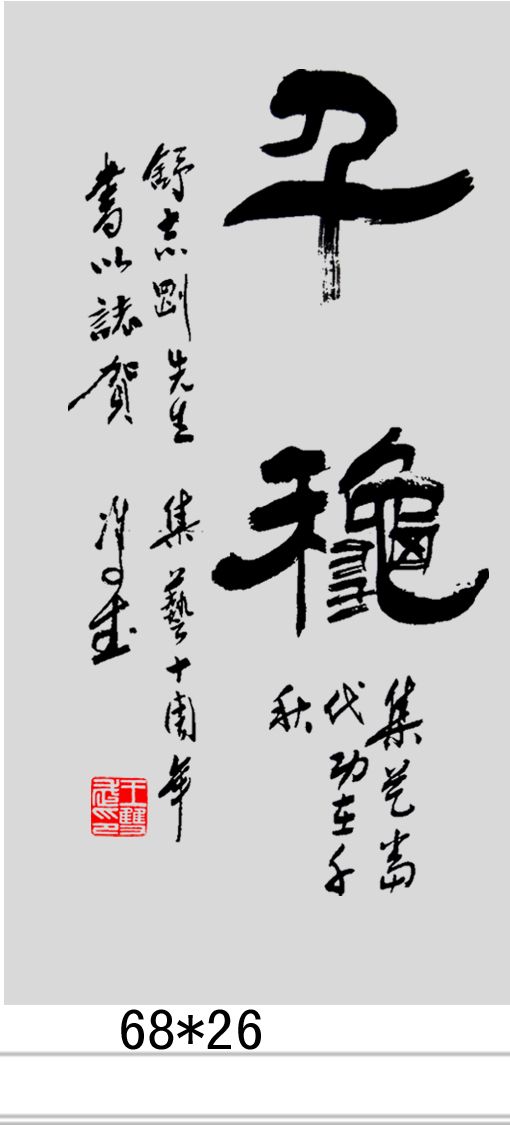 千龝
集艺當
代功在千
秋
舒志剛先生 集藝十周年
書以誌賀
王雙
武印
68*26